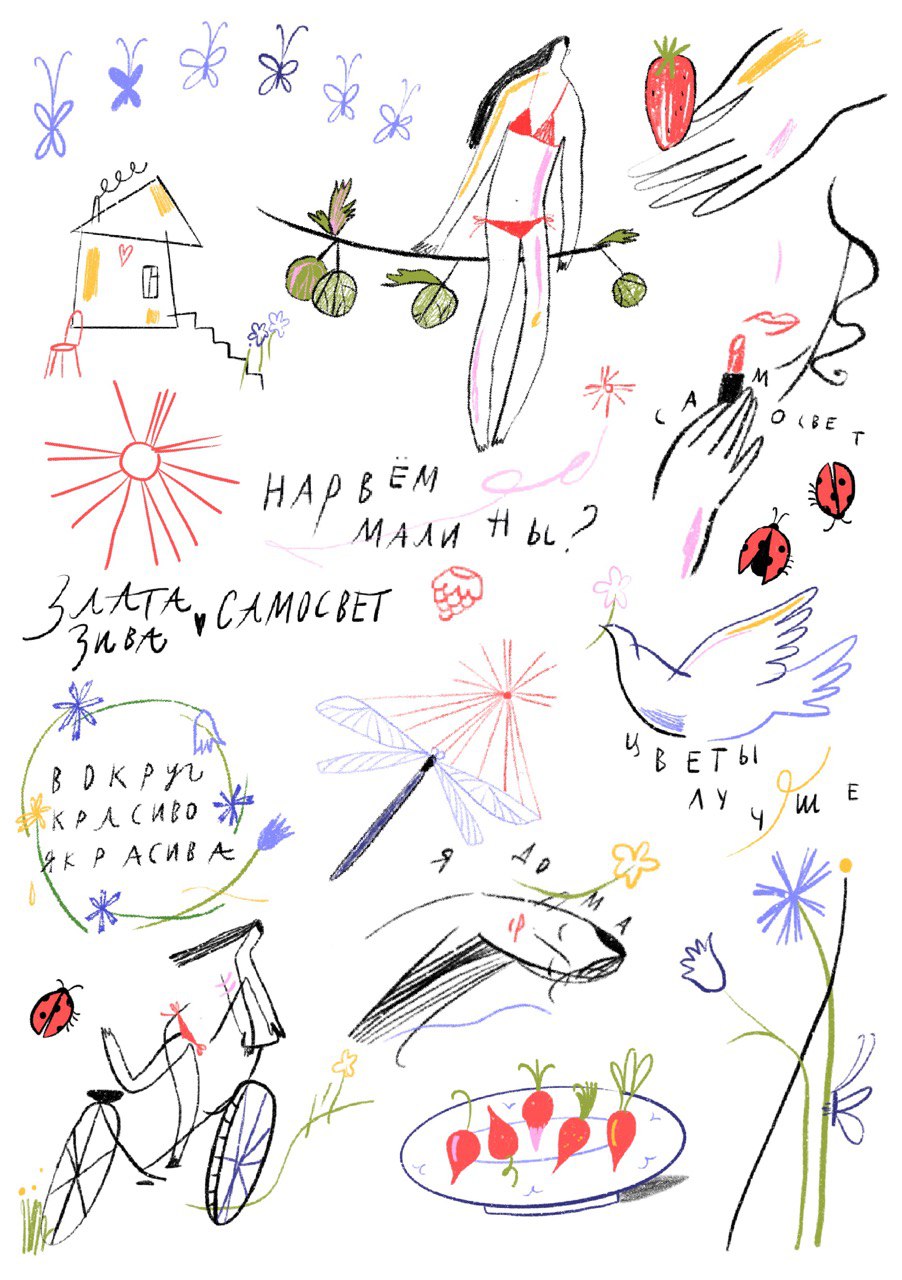 САМОСВЕТ
НАРВЁМ
МАЛИНЫ?
ЗЛАТА САМОСВЕТ
ЗИВА
ЦВЕТЫ
ЛУЧШЕ
ВОКРУГ
КРАСИВО
Я КРАСИВА
Я ДОМА